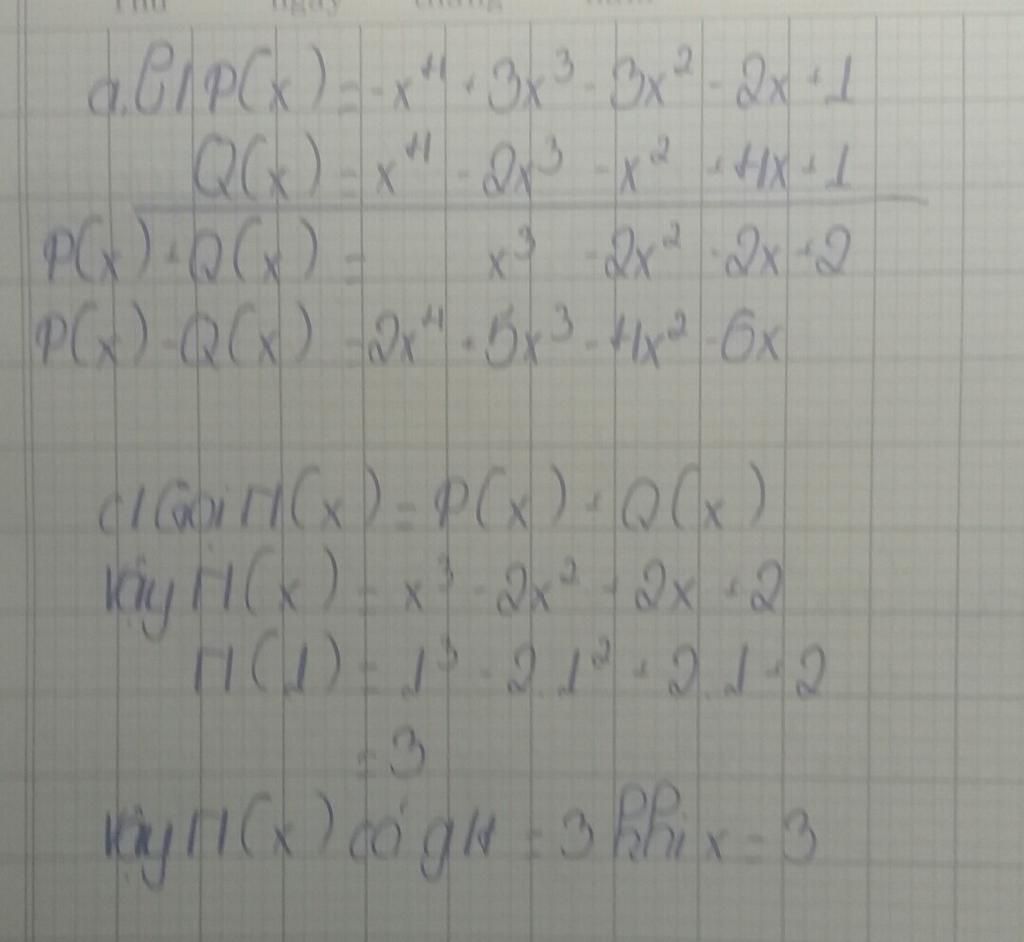 Thứ ngày tháng năm
a.b/ P(x) = -x⁴ + 3x³ - 3x² - 2x + 1
Q(x) = x⁴ - 2x³ - x² + 4x + 1
P(x) + Q(x) = x³ - 2x² + 2x + 2
P(x) - Q(x) = -2x⁴ + 5x³ - 4x² - 6x
c/ Gọi H(x) = P(x) + Q(x)
Vậy H(x) = x³ - 2x² + 2x + 2
H(1) = 1³ - 2.1² + 2.1 + 2
= 3
Vậy H(x) có gt = 3 khi x = 3